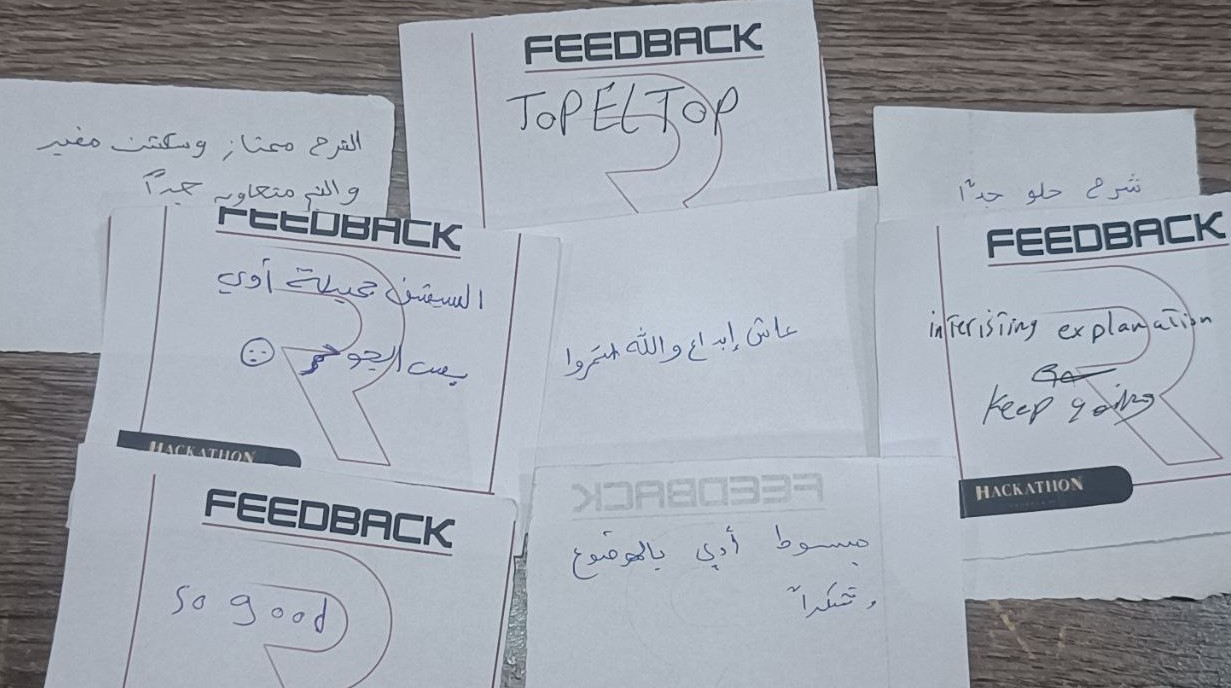 FEEDBACK
TOP EL TOP
الشرح ممتاز وسكشن مفيد
والتيم متعاون جداً
شرح حلو جداً
FEEDBACK
السيشن جميلة أوي
بس الجو حر
HACKATHON
عاش إبداع والله استمروا
FEEDBACK
interisting explanation
keep going
HACKATHON
FEEDBACK
so good
FEEDBACK
مبسوط أوي بالموضوع
وشكراً